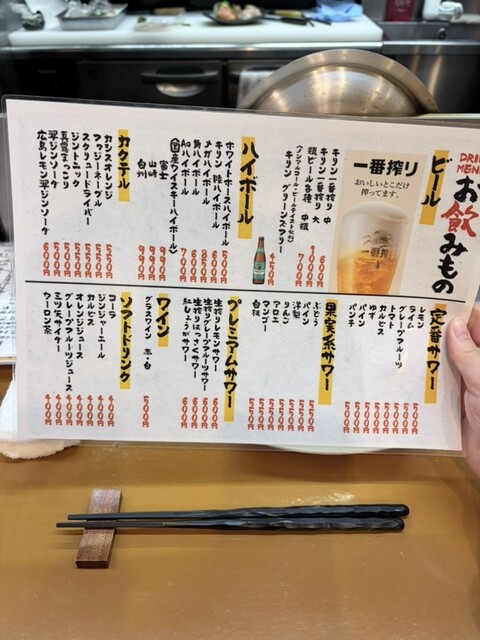 DRINK MENU
お飲みもの
ビール
キリン一番搾り 中 600円
キリン一番搾り 大 1000円
瓶ビール各種 中瓶 700円
〈ノンアルコール・ビールテイスト飲料〉
キリン グリーンズフリー 450円
一番搾り
おいしいとこだけ
搾ってます。
ハイボール
ホワイトホースハイボール 500円
キリン 陸ハイボール 600円
メガハイボール 850円
角ハイボール 600円
AOハイボール 700円
〈国産ウイスキーハイボール〉
富士 990円
山崎 990円
白州 990円
カクテル
カシスオレンジ 550円
ファジーネーブル 550円
スクリュードライバー 550円
ジントニック 550円
長濱まっこり 500円
翠ジンソーダ 600円
広島レモン翠ジンソーダ 600円
定番サワー
レモン 500円
ライム 500円
グレープフルーツ 500円
トマト 500円
カルピス 500円
ゆず 500円
パイン 500円
パンチ 500円
果実系サワー
ぶどう 550円
パイン 550円
洋梨 550円
りんご 550円
アロエ 550円
マンゴー 550円
白桃 550円
プレミアムサワー
生搾りレモンサワー 600円
生搾りグレープフルーツサワー 600円
生搾りはっさくサワー 600円
紅しょうがサワー 600円
ワイン
グラスワイン 赤・白 500円
ソフトドリンク
コーラ 400円
ジンジャーエール 400円
カルピス 400円
オレンジジュース 400円
グレープフルーツジュース 400円
三ツ矢サイダー 400円
ウーロン茶 400円